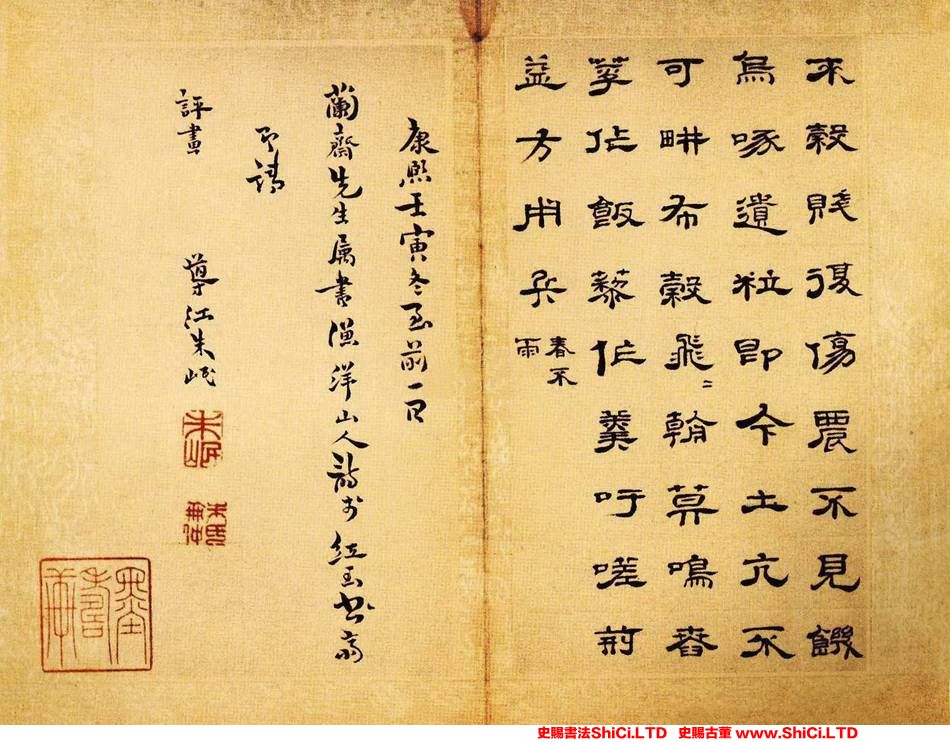 來穀賤復傷農不見饑
烏啄遺粒即今土亢不
可畊布穀飛〻翰莫鳴舂
莩作飯藜作羹吁嗟荊
益方用兵 春不
雨
康熙壬寅冬至前一日
蘭齋先生属書漁洋山人詩於紅玉書齋
即請
評畫
導江朱岷
朱岷
史賜書法ShiCi.LTD 史賜古董 www.ShiCi.LTD